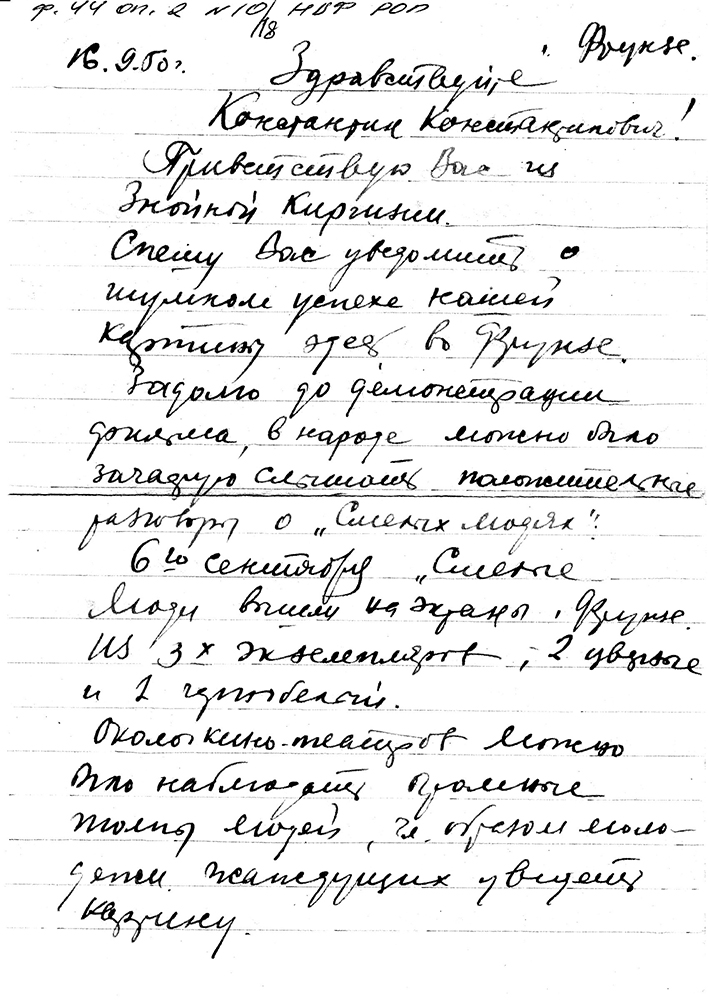 ф. 44 оп. 2 N 10/18 НВФ РОП
16.9.50г. г. Фрунзе.
Здравствуйте
Константин Константинович!
Приветствую Вас из
Знойной Киргизии.
Спешу Вас уведомить о
шумном успехе нашей
картины здесь во Фрунзе.
Задолго до демонстрации
фильма, в народе можно было
зачастую слышать положительные
разговоры о „Смелых людях".
6го сентября „Смелые
люди вышли на экраны г. Фрунзе.
Из 3х экземпляров, 2 цветные
и 1 чернобелый.
Около кино-театров можно
было наблюдать огромные
толпы людей, гл. образом моло-
дежи жаждущих увидеть
картину.